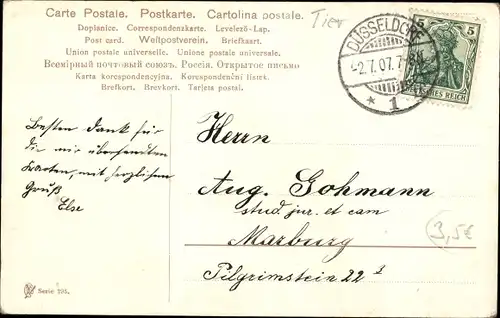 Carte Postale. Postkarte. Cartolina postale.
Dopisnice. Correspondenzkarte. Levelező-Lap.
Post card. Weltpostverein. Briefkaart.
Union postale universelle. Unione postale universale.
Всемірный почтовый союзъ. Россія. Открытое письмо
Karta korespondencyjna. Korespondenční lístek.
Brefkort. Brevkort. Tarjeta postal.
Tier
DÜSSELDORF
-2.7.07.7
* 1
5 5
DEUTSCHES REICH
Besten Dank für
die mir übersandten
Karten, mit herzlichem
Gruß
Else
Herrn
Aug. Gohmann
stud. jur. et cam
Marburg
Pilgrimstein 22 I
3,5€
Serie 595.